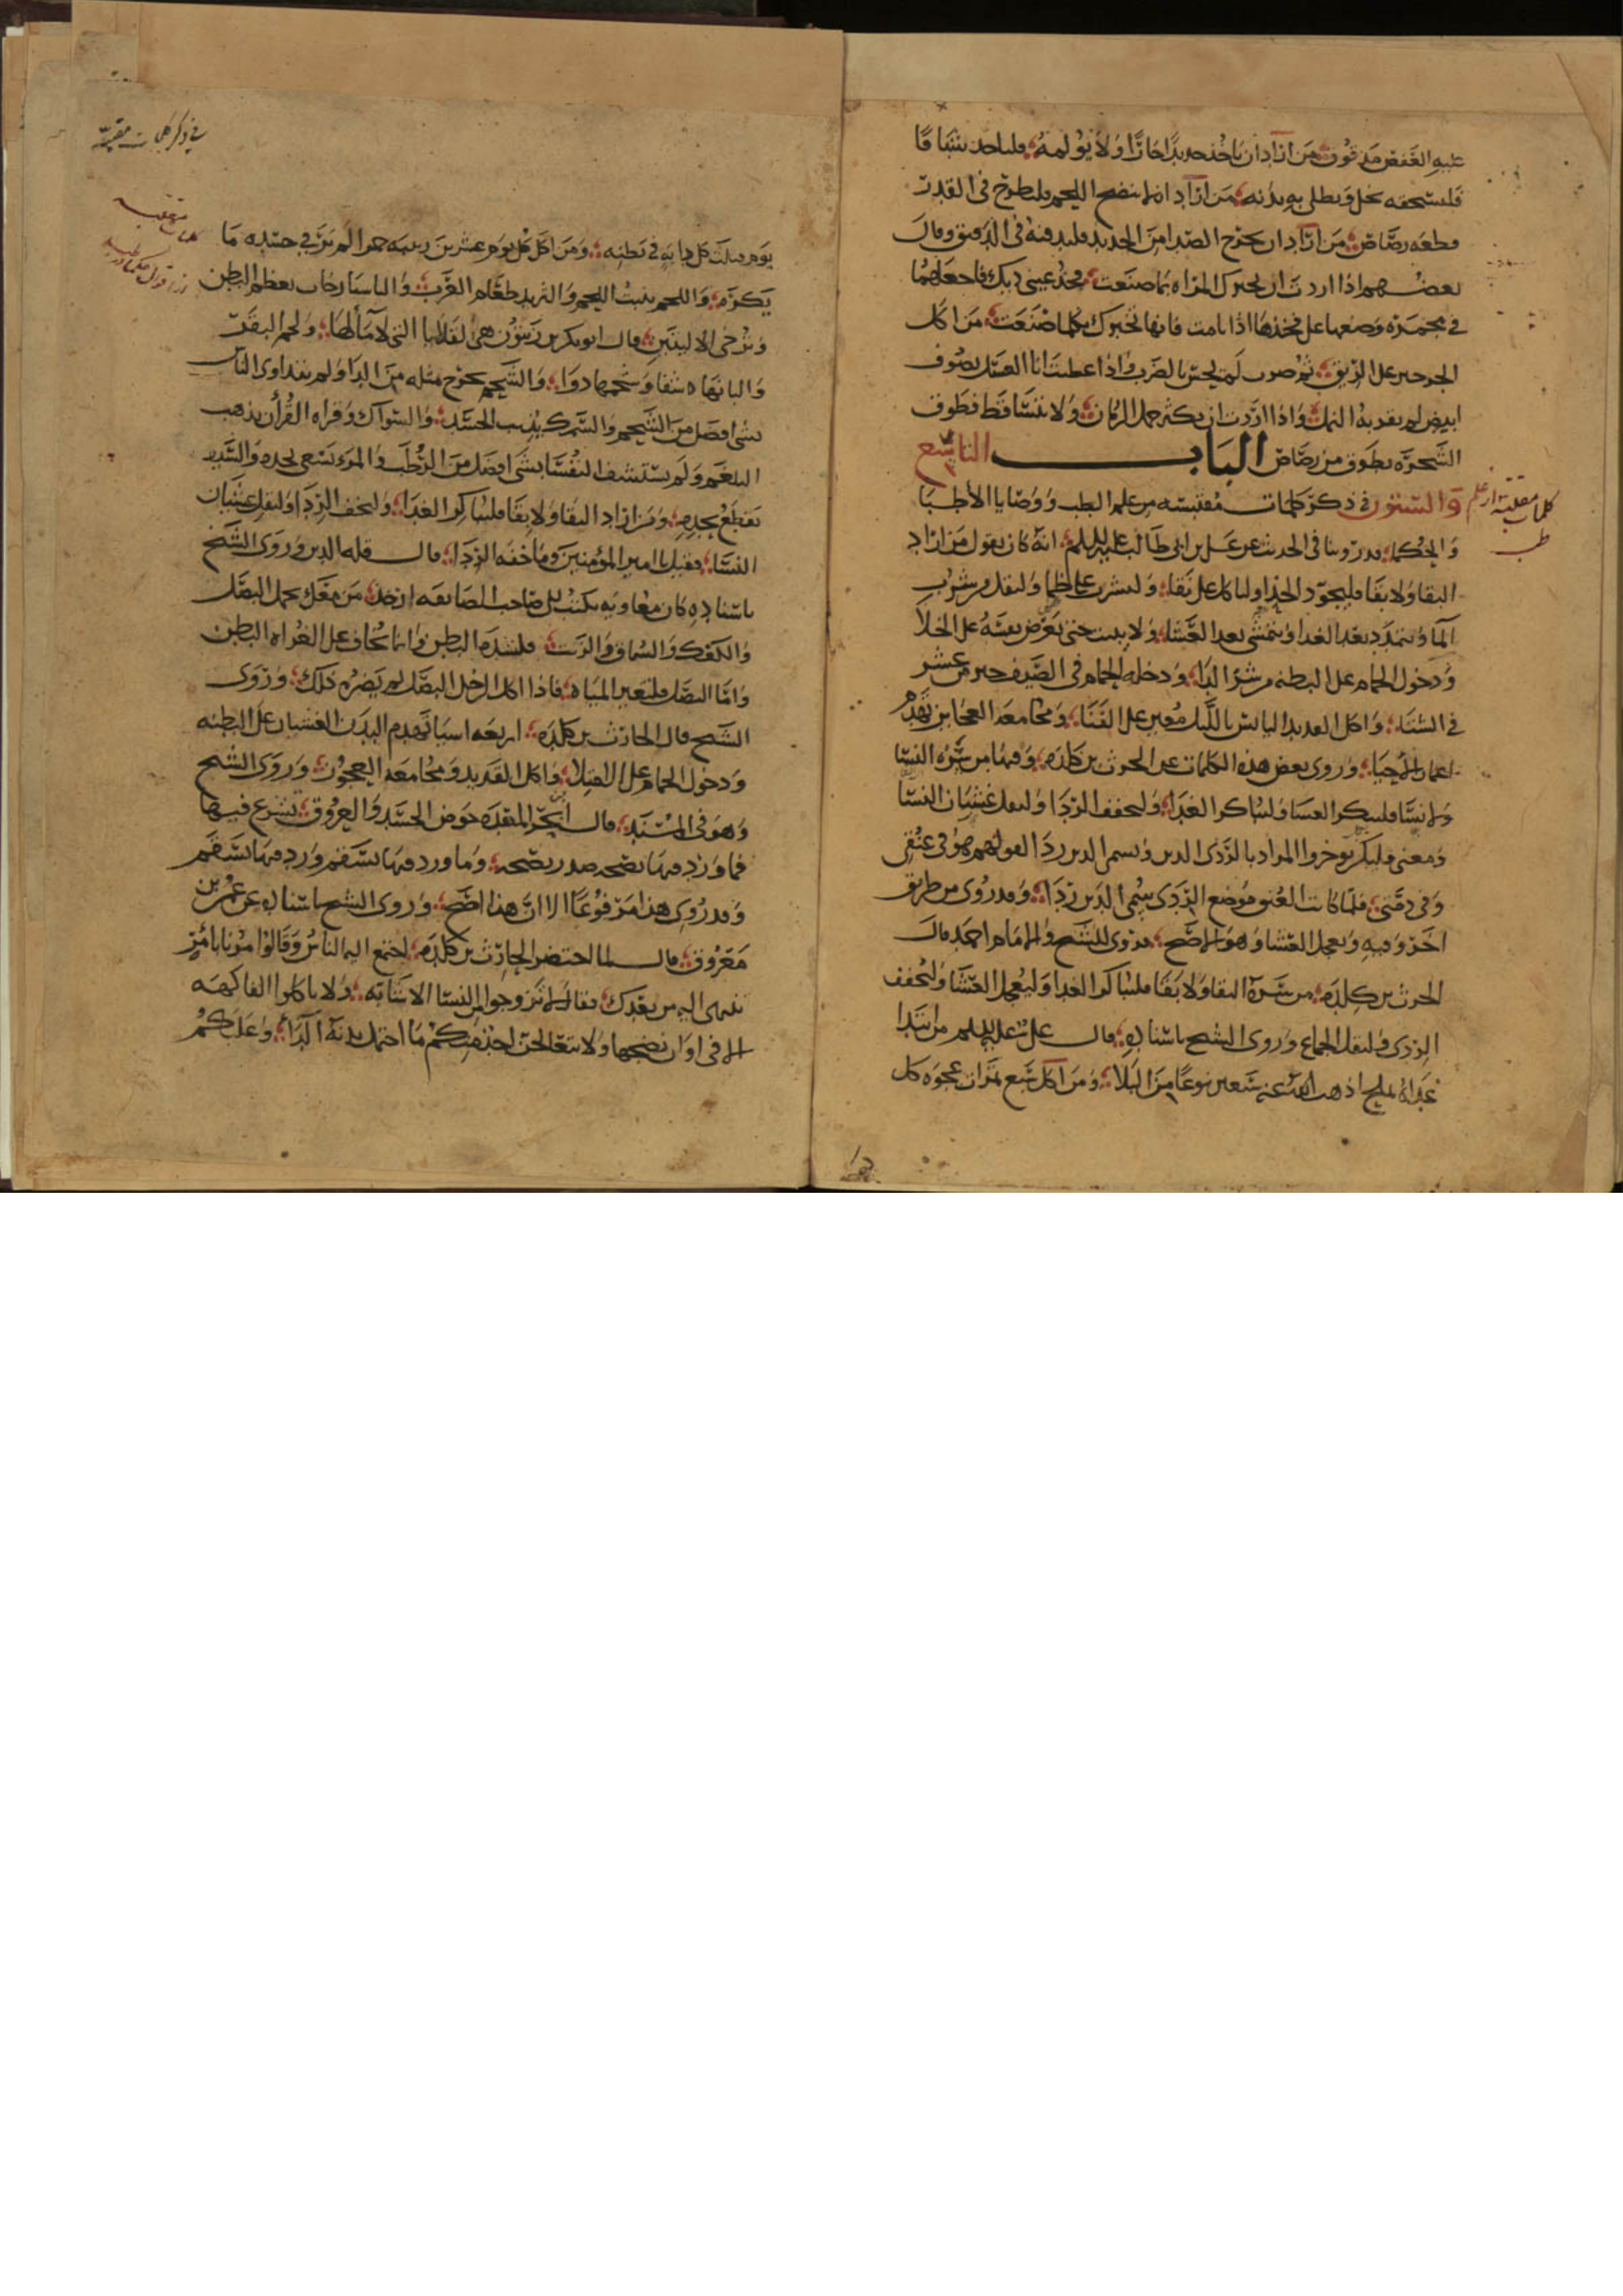 عليه العفص مدقوق من اراد ان ياخذ حديدا حارا ولا يولمه فلياخذ
فليسحقه بخل ويطلي به بدنه من اراد ان لا ينضج اللحم فليطرح في القدر
قطعه رصاص من اراد ان يخرج الصدا من الحديد فليدفنه في الدقيق وقال
بعضهم اذا اردت ان تخبرك المراه بما صنعت فخذ عيني ديك فاجعلهما
في وضعها على فخذها اذا نامت فانها تخبرك بكلما صنعت من اكل
على الريق ثم ضرب لم يحس بالضرب واذا غطيت انا العسل بصوف
ابيض لم يقربه النمل واذا اردت ان يكثر حمل الرمان ولا يتساقط فطوق
الشجره بطوق من رصاص الباب التاسع
والستون في ذكر كلمات مقتبسه من علم الطب ووصايا الأطبا
والحكما قد روينا في الحديث عن علي بن ابي طالب عليه السلم انه كان يقول من اراد
البقا ولا بقا فليجود الحذا ولياكل على نقا وليشرب على ظما وليقل من شرب
الما ويتمدد بعد الغدا ويتمشى بعد العشا ولا يبيت حتى يعرض نفسه على الخلا
ودخول الحمام على البطنه من شر الدا ودخله الحمام في الصيف خير من عشر
في الشتا واكل القديد اليابس بالليل معين على الفنا ومجامعه العجايز تهدم
اعمار الأحيا وروى بعض هذه الكلمات عن الحرث بن كلده وفيها من سره النسا
ولا نسا فليبكر العشا وليباكر الغدا وليخفف الردا وليقل غشيان النسا
ومعنى فليبكر يوخر والمراد بالردى الدين ويسمى الدين ردا لقولهم هو في عنقي
وفي ذمتي فلما كانت العنق موضع الردى سمي الدين ردا وقد روى من طريق
اخر وفيه ويعجل العشا وهو الاصح فروى الشيخ والامام احمد قال
الحرث بن كلده من سره البقا ولا بقا فليباكر الغدا وليعجل العشا وليخفف
الردى وليقل الجماع وروى الشيخ باسناده قال علي عليه السلم من ابتدا
غداه بملح اذهب الله عنه سبعين نوعا من البلا ومن اكل سبع تمرات عجوه كل
كلمات مقتبسة از علم
طب
في ذكر كلمات مقتبسة
كلمات مقتبسه
يوم قتلت كل دابه في بطنه ومن اكل كل يوم عشرين زبيبه حمرا لم ير في جسده ما
يكره واللحم ينبت اللحم والثريد طعام العرب يعظم البطن
وترخي الاليتين قال ابو بكر بن
والبانها شفا وشحمها دوا والشحم يخرج مثله من الدا ولم يتداوى الناس
بشي افضل من الشحم والسمك يذيب الجسد والسواك وقراه القرأن يذهب
البلغم ولم يستشف النفسا بشي افضل من الرطب والمرء يسعى بجده والسيف
يقطع بحده ومن اراد البقا ولا بقا فليباكر الغدا وليخفف الردا وليقل غشيان
النسا فقيل يا امير المؤمنين وما خفه الردا قال قله الدين وروى الشيخ
باسناده كان معاويه يكتب الى صاحب الصايفه ان خذ من معك بحمل البصل
والكعك والسماق والزيت فليشد ما البطن وانما تخاف على الغزاه البطن
واما البصل فليغير المياه فاذا اكل الرجل البصل لم يضره ذلك وروى
الشيخ قال الحارث بن كلده اربعه اسيا تهدم البدن الغشيان على البطنه
ودخول الحمام على الامتلا واكل القديد ومجامعه العجوز وروى الشيخ
وهو في المسند قال المعده حوض الجسد والعروق تشرع فيها
فما ورد فيها بصحه صدر بصحه وما ورد فيها بسقم ورد فيها بسقم
وقد روى هذا مرفوعا الا ان هذا اصح وروى الشيخ باسناده عن عمر بن
معروف قال لما احتضر الحارث بن كلده اجتمع اليه الناس وقالوا مرنا بامر
ننهي اليه من بعدك فقال لا تتزوجوا من النسا الا شابه ولا تاكلوا الفاكهه
الا في اوان نضجها ولا يتعالجن احد منكم ما احتمل بدنه الدا وعليكم